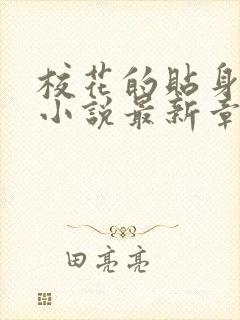 校花的貼身
小說最新章
田亮亮